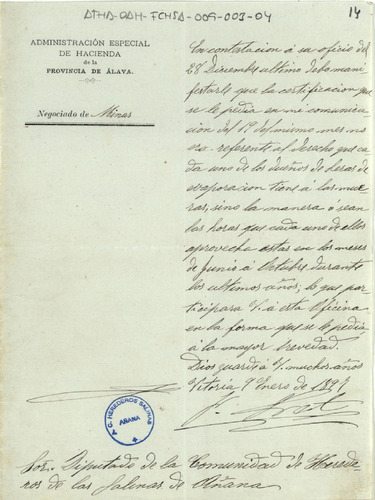 ATHA-DAH-FCHSA-009-003-04
14
ADMINISTRACIÓN ESPECIAL
DE HACIENDA
de la
PROVINCIA DE ÁLAVA.
Negociado de Minas
En contestacion á su oficio del
27 Diciembre ultimo debo mani
festarle que la certificacion que
se le pedia en mi comunica
cion del 19 del mismo mes no
era referente al derecho que ca
da uno de los dueños de heras de
evaporacion tiene á las mue
ras, sino la manera ó sean
las horas que cada uno de ellos
aprovecha estas en los meses
de Junio á Octubre durante
los ultimos años; lo que par
ticipara V. á esta Oficina
en la forma que se le pedia
á la mayor brevedad.
Dios guarde á V. muchos años
Vitoria 9 Enero de 189
COMUNIDAD HEREDEROS SALINAS
AÑANA
Sor. Diputado de la Comunidad de Herede
ros de las Salinas de Añana